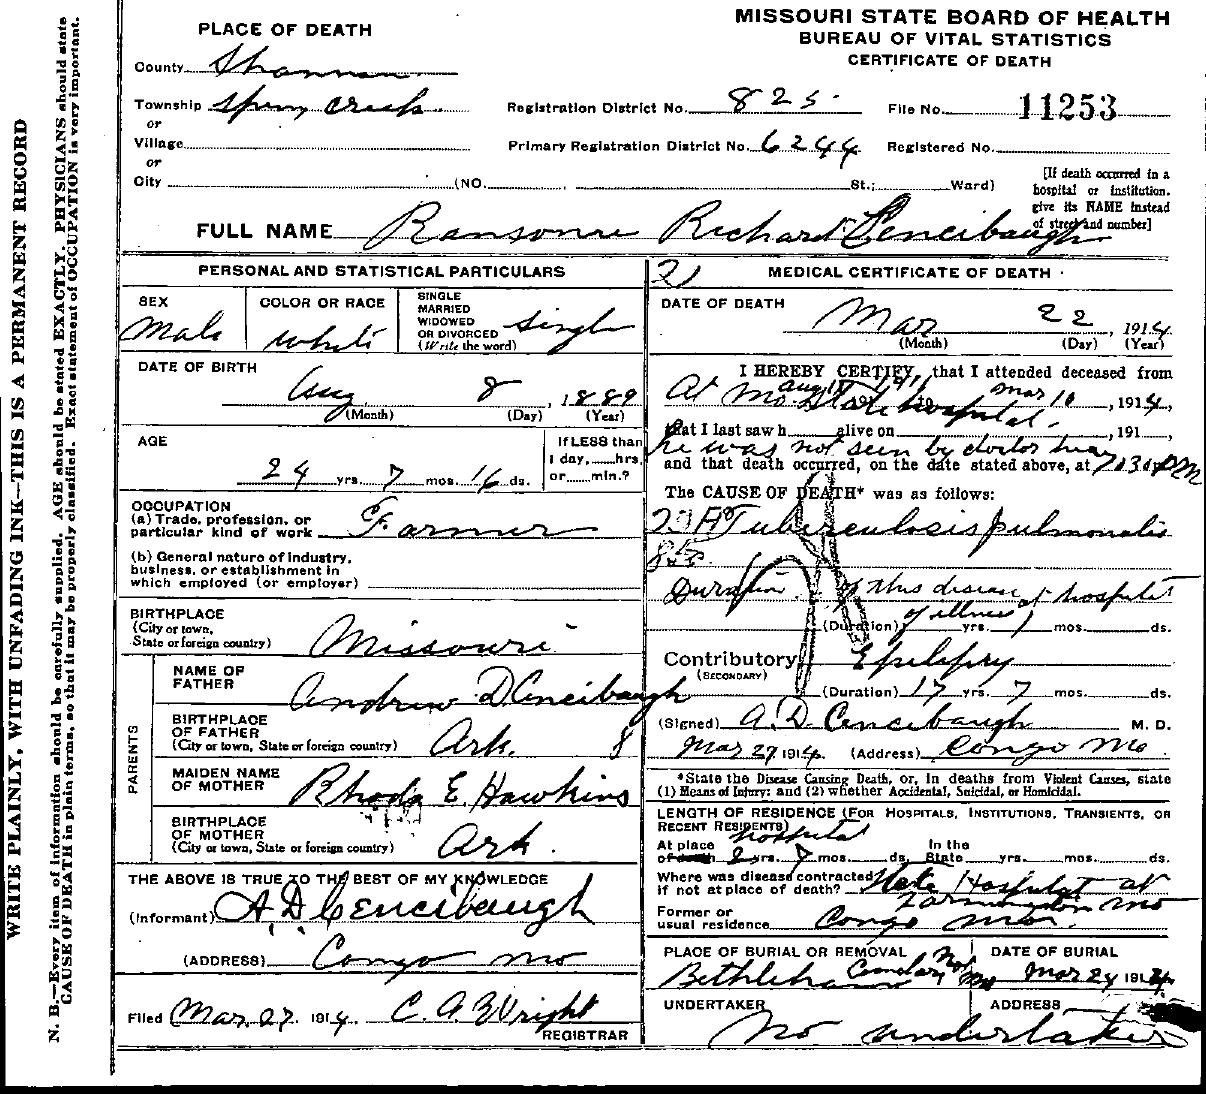 MISSOURI STATE BOARD OF HEALTH
BUREAU OF VITAL STATISTICS
CERTIFICATE OF DEATH
PLACE OF DEATH
County Shannon
Township Spring Creek
or
Village
or
City (NO. , St.; Ward)
Registration District No. 825. File No. 11253
Primary Registration District No. 6244 Registered No.
[If death occurred in a
hospital or institution,
give its NAME instead
of street and number]
FULL NAME Ransome Richard Lenceibaugh
PERSONAL AND STATISTICAL PARTICULARS
SEX
Male
COLOR OR RACE
White
SINGLE
MARRIED
WIDOWED
OR DIVORCED
(Write the word)
Single
DATE OF BIRTH
Aug 8, 1889
(Month) (Day) (Year)
AGE
24 yrs. 7 mos. 16 ds.
If LESS than
1 day, hrs.
or min.?
OCCUPATION
(a) Trade, profession, or
particular kind of work Farmer
(b) General nature of industry,
business, or establishment in
which employed (or employer)
BIRTHPLACE
(City or town,
State or foreign country) Missouri
PARENTS
NAME OF
FATHER Andrew D Cenceibaugh
BIRTHPLACE
OF FATHER
(City or town, State or foreign country) Ark. 8
MAIDEN NAME
OF MOTHER Rhoda E. Hawkins
BIRTHPLACE
OF MOTHER
(City or town, State or foreign country) Ark.
THE ABOVE IS TRUE TO THE BEST OF MY KNOWLEDGE
(Informant) A. D. Cenceibaugh
(ADDRESS) Congo Mo
Filed Mar. 27. 1914. C. A. Wright
REGISTRAR
21 MEDICAL CERTIFICATE OF DEATH
DATE OF DEATH
Mar 22, 1914
(Month) (Day) (Year)
I HEREBY CERTIFY, that I attended deceased from
Aug Mar 10, 1914,
At Mo. State hospital.
that I last saw h alive on , 191 ,
he was not seen by doctor
and that death occurred, on the date stated above, at 7:30 PM
The CAUSE OF DEATH* was as follows:
Tuberculosis pulmonalis
Duration of this disease at hospital
of illness
(Duration) yrs. mos. ds.
Contributory Epilepsy
(SECONDARY)
(Duration) 17 yrs. 7 mos. ds.
(Signed) A. D. Cenceibaugh M. D.
Mar 27 1914. (Address) Congo Mo.
*State the Disease Causing Death, or, in deaths from Violent Causes, state
(1) Means of Injury; and (2) whether Accidental, Suicidal, or Homicidal.
LENGTH OF RESIDENCE (FOR HOSPITALS, INSTITUTIONS, TRANSIENTS, OR
RECENT RESIDENTS)
hospital
At place In the
of death 2 yrs. 7 mos. ds. State yrs. mos. ds.
Where was disease contracted
if not at place of death? State Hospital at
Farmington Mo
Former or
usual residence Congo Mo.
PLACE OF BURIAL OR REMOVAL DATE OF BURIAL
Bethlehem Mar 24 1914
UNDERTAKER ADDRESS
No undertaker
WRITE PLAINLY, WITH UNFADING INK—THIS IS A PERMANENT RECORD
N. B.—Every item of information should be carefully supplied. AGE should be stated EXACTLY. PHYSICIANS should state
CAUSE OF DEATH in plain terms, so that it may be properly classified. Exact statement of OCCUPATION is very important.